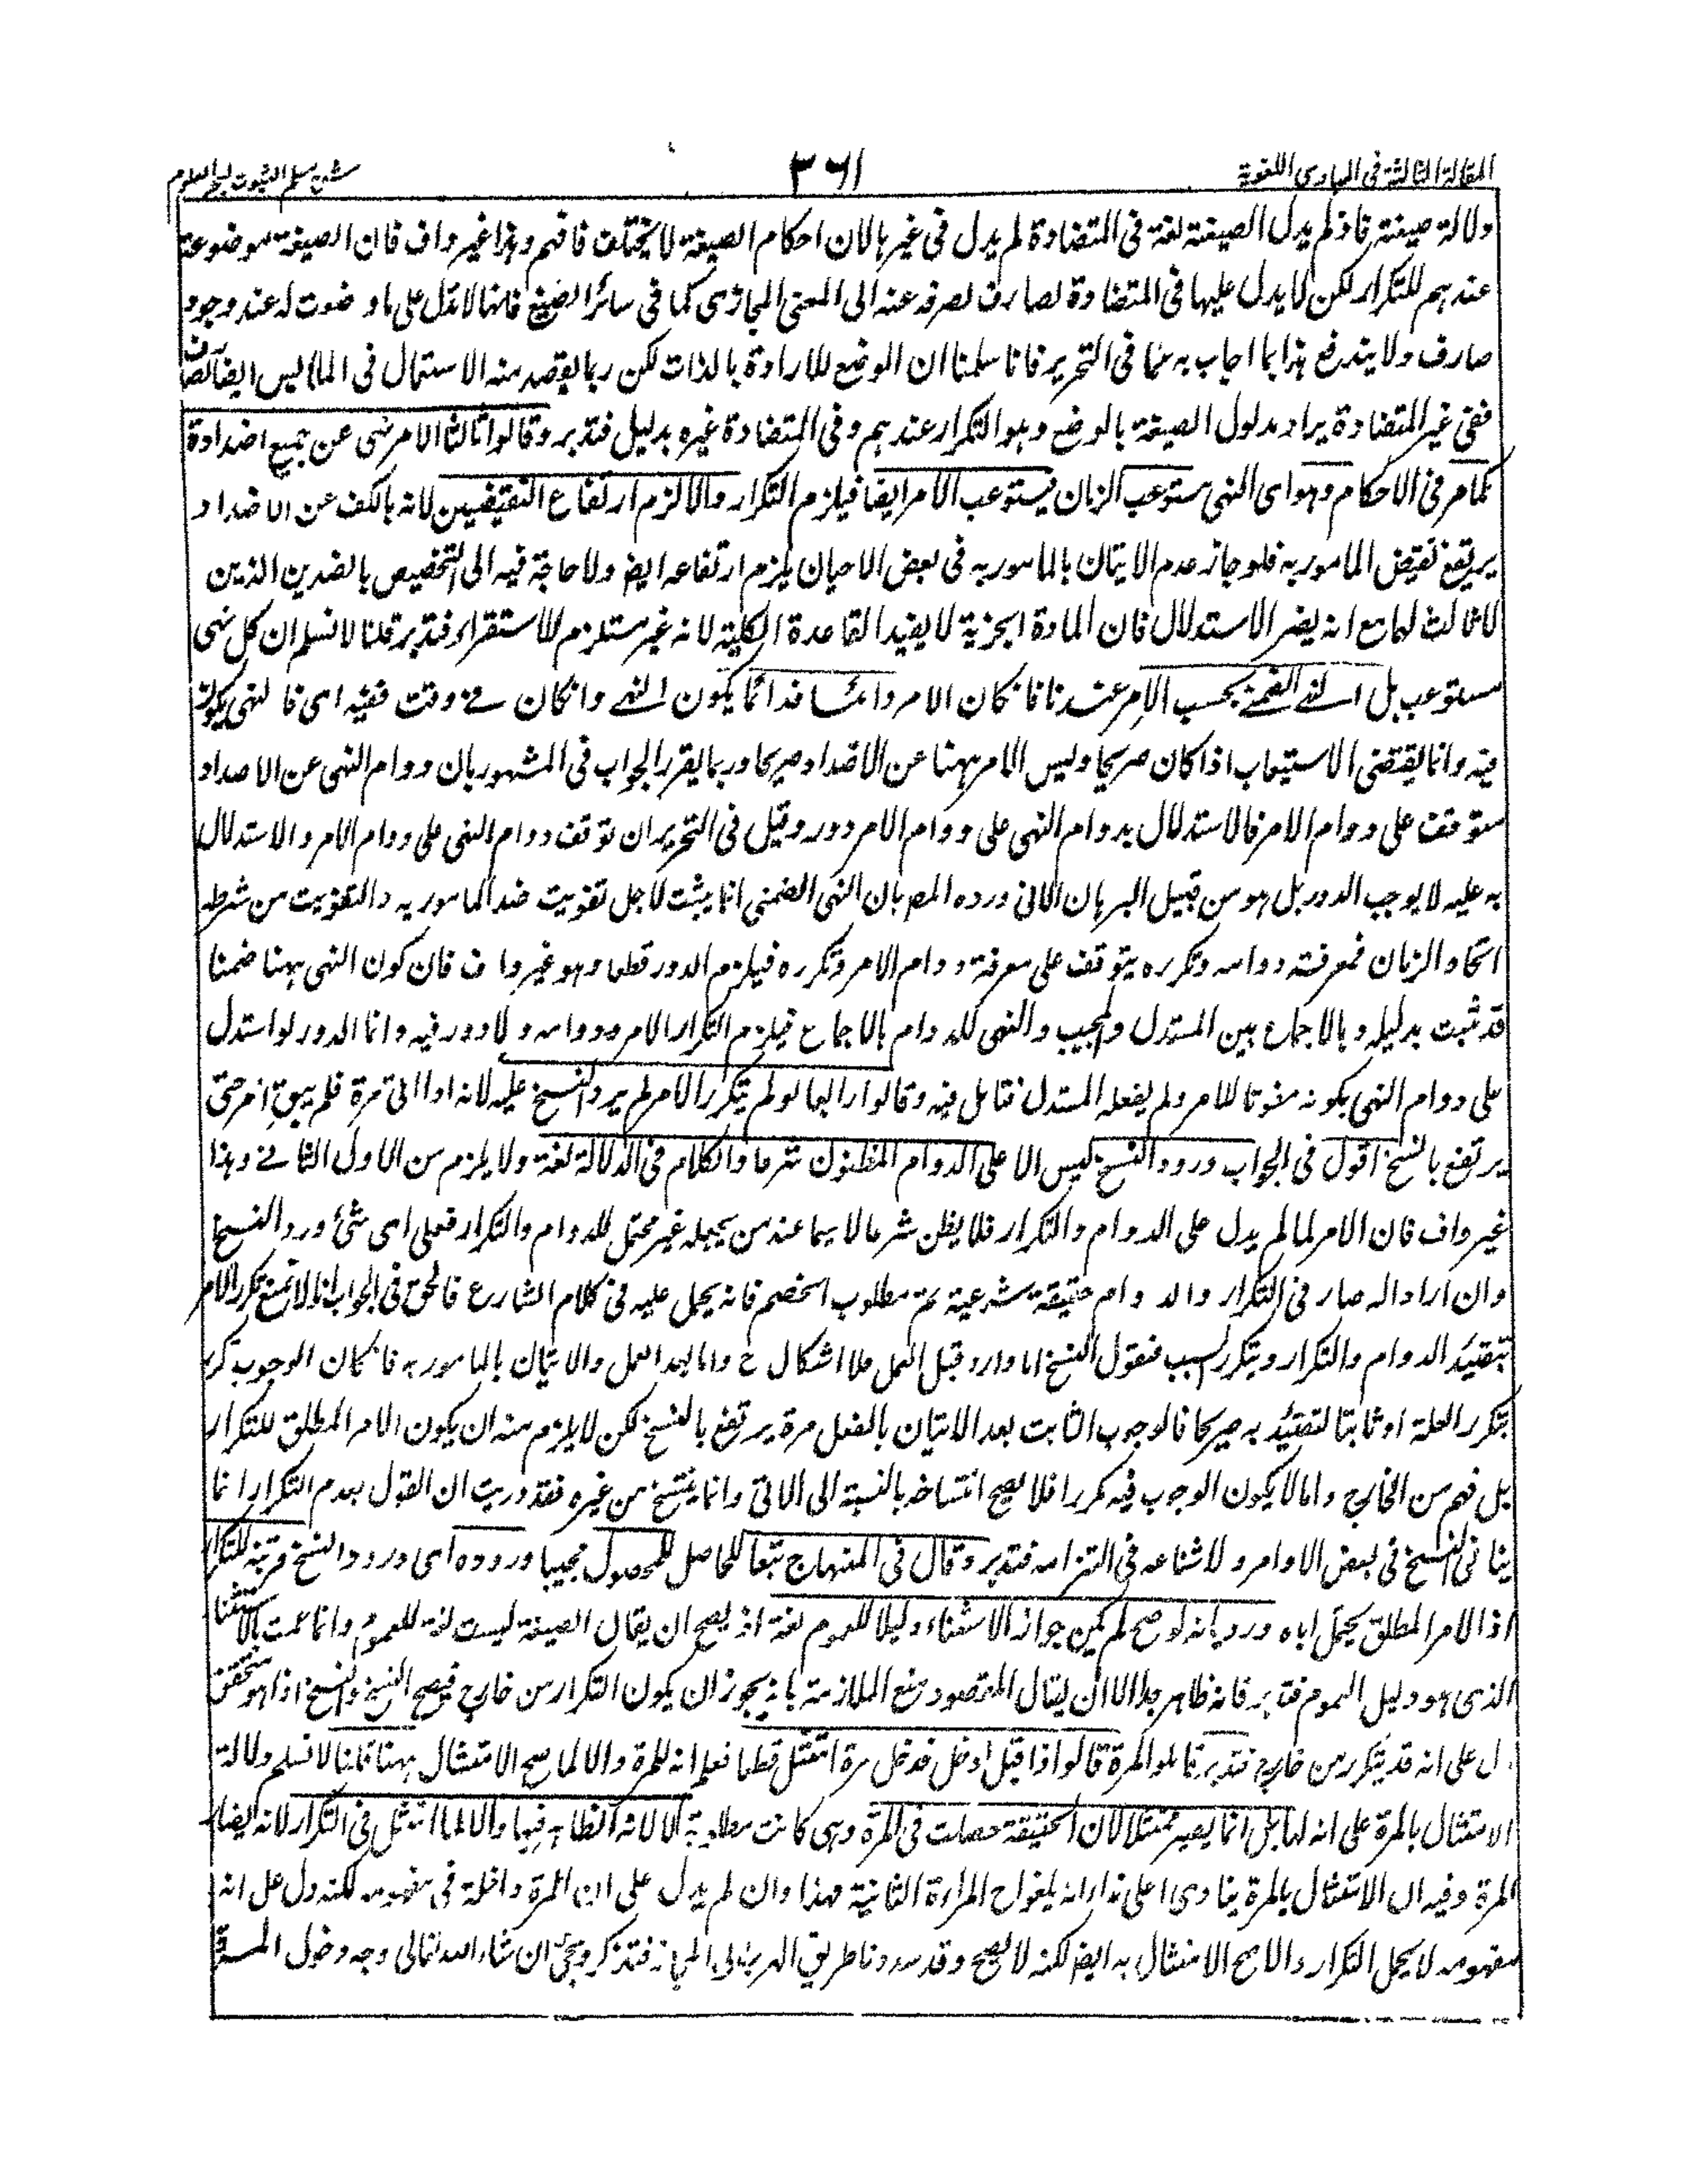 المقالة الثالثة فى المبادى اللغوية
٣٦١
شرح مسلم الثبوت لبحر العلوم
دلالة صيغة فاذ لم يدل الصيغة لغة فى المتضادة لم يدل فى غيرها لان احكام الصيغة لا يختلف فافهم وهذا غير واف فان الصيغة موضوعة
عندهم للتكرار لكن لا يدل عليها فى المتضادة لصارف لصرفه عنه الى المعنى المجازى كما فى سائر الصيغ فانها لا تدل على ما وضعت له عند وجود
صارف ولا يندفع هذا بما اجاب به مما فى التحرير فانا سلمنا ان الوضع للارادة بالذات لكن ربما يقصد منه الاستعمال فى الما ليس ايضا لصارف
ففى غير المتضادة يراد مدلول الصيغة بالوضع وهو التكرار عندهم وفى المتضادة غيره بدليل فتدبر وقالوا ثالثا الامر نهى عن جميع اضداده
كما مر فى الاحكام وهو اى النهى مستوعب الزمان فيستوعب الامر ايضا فيلزم التكرار والا لزم ارتفاع النقيضين لانه بالكف عن الاضداد
يرتفع نقيض المامور به فلو جاز عدم الاتيان بالمامور به فى بعض الاحيان يلزم ارتفاعه ايضا ولا حاجة فيه الى التخصيص بالضدين الذين
لا ثالث لهما مع انه يضر الاستدلال فان المادة الجزية لا يفيد القاعدة الكلية لانه غير مستلزم للاستقراء فتدبر قلنا لا نسلم ان كل نهى
مستوعب بل النهى الضمنى بحسب الامر عندنا فان كان الامر دائما فدائما يكون النهى وان كان فى وقت ففيه اى فالنهى يكون
فيه وانما يقتضى الاستيعاب اذا كان صريحا وليس الامر ههنا عن الاضداد صريحا وربما يقرر الجواب فى المشهور بان دوام النهى عن الاضداد
متوقف على دوام الامر فالاستدلال بدوام النهى على دوام الامر دور وقيل فى التحرير ان توقف دوام النهى على دوام الامر والاستدلال
به عليه لا يوجب الدور بل هو من قبيل البرهان الانى ورده المص بان النهى الضمنى انما يثبت لاجل تفويت ضد المامور به والتفويت من شرطه
اتحاد الزمان فمعرفة دوامه وتكرره يتوقف على معرفة دوام الامر وتكرره فيلزم الدور قطعا وهو غير واف فان كون النهى ههنا ضمنا
قد ثبت بدليله وبالاجماع بين المستدل والمجيب والنهى للدوام بالاجماع فيلزم التكرار الامر ودوامه ولا دور فيه وانما الدور لو استدل
على دوام النهى بكونه مفوتا للامر ولم يفعله المستدل فتامل فيه وقالوا رابعا لو لم يتكرر الامر لم يرد النسخ عليه لانه اذا اتى مرة فلم يبق امر حتى
يرتفع بالنسخ اقول فى الجواب ورود النسخ ليس الا على الدوام المظنون شرعا والكلام فى الدلالة لغة ولا يلزم من الاول الثانى وهذا
غير واف فان الامر لما لم يدل على الدوام والتكرار فلا يظن شرعا لا سيما عند من يجعله غير محتمل للدوام والتكرار فعلى اى شئ ورد النسخ
وان اراد انه صار فى التكرار والدوام حقيقة شرعية تم مطلوب الخصم فانه يحمل عليه فى كلام الشارع فالحق فى الجواب انا لا نمنع تكرر الامر
بتقييد الدوام والتكرار ويتكرر السبب فنقول النسخ اما وارد قبل العمل فلا اشكال ح واما بعد العمل والاتيان بالمامور به فان كان الوجوب تكرر
بتكرر العلة او ثابتا لتقييد به صريحا فالوجوب الثابت بعد الاتيان بالفعل مرة يرتفع بالنسخ لكن لا يلزم منه ان يكون الامر المطلق للتكرار
بل فهم من الخارج واما لا يكون الوجوب فيه مكررا فلا يصح انتساخه بالنسبة الى الاتى وانما ينتسخ من غيره فقد دريت ان القول بعدم التكرار انما
ينافى النسخ فى بعض الاوامر ولا شناعه فى التزامه فتدبر وقال فى المنهاج تبعا للحاصل للمحصول مجيبا وروده اى ورود النسخ قرينة للتكرار
اذ الامر المطلق يحتمل اياه ورد بانه لو صح لم يكن جواز الاستثناء دليلا للعموم لغة اذ يصح ان يقال الصيغة ليست لغة للعموم وانما عمت بالاستثناء
الذى هو دليل العموم فتدبر فانه ظاهر جدا الا ان يقال المقصود منع الملازمة بانه يجوز ان يكون التكرار من خارج فيصح النسخ والنسخ اذا هو متحقق
دل على انه قد يتكرر من خارج فتدبر قائلو المرة قالوا اذا قيل ادخل فدخل مرة امتثل قطعا فعلم انه للمرة والا لما صح الامتثال بهنا قلنا لا نسلم دلالة
الامتثال بالمرة على انه لها بل انما يصير ممتثلا لان الحقيقة حصلت فى المرة وهى كانت مطلوبة لا لانه الظاهر فيها والا لما امتثل فى التكرار لانه ايضا
المرة وفيه ان الامتثال بالمرة ينادى اعلى نداء انه يلغو ح المراءة الثانية فهذا وان لم يدل على ان المرة داخلة فى مفهومه لكنه دل على انه
مفهومه لا يحمل التكرار والا صح الامتثال به ايضا لكنه لا يصح وقد سددنا طريق الهرب الى المجاز فتذكر ويجئ ان شاء الله تعالى وجه دخول المسئلة